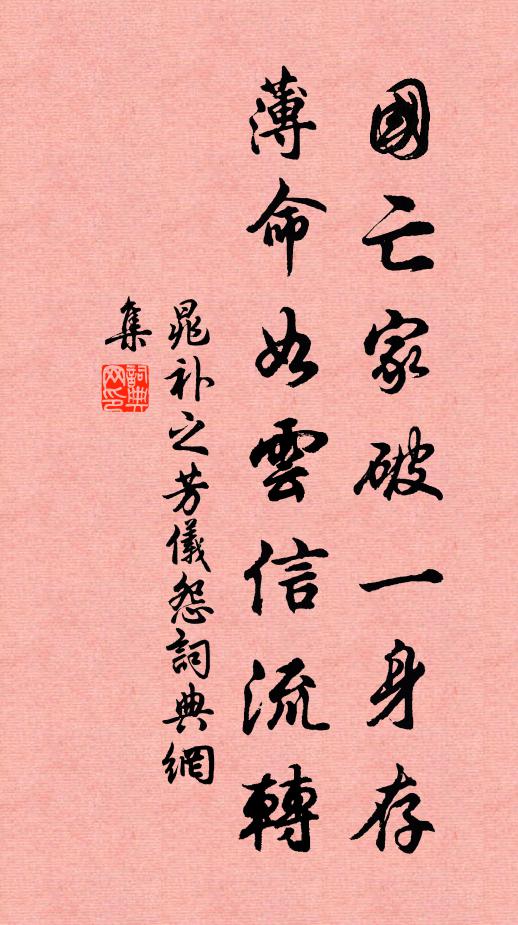 國亡家破一身存
薄命如雲信流轉
晁补之芳儀怨詞典網
集
詞典
网印